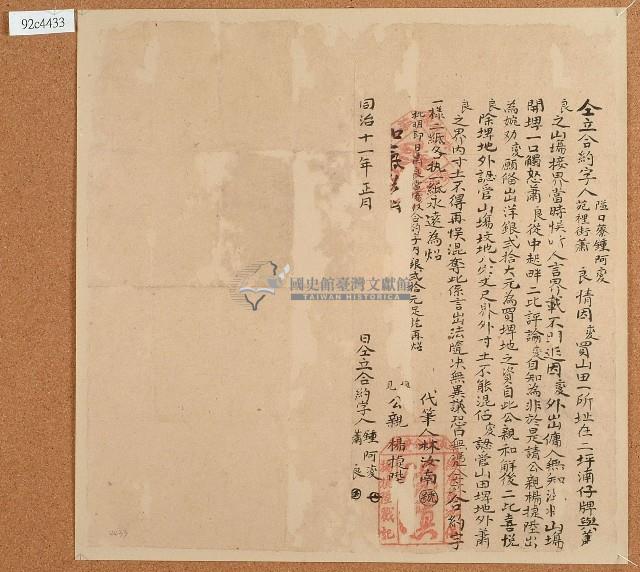 92c4433
仝立合約字人
隘口藔鍾阿变
苑裡街蕭 良
情因变買山田一所址在二坪湳仔牌與蕭
良之山塲接界當時悞听人言界載不明
因变外出傭人無知
山塲
開埤一口觸怒蕭良從中起畔二比評論变自知為非於是請公親楊捷陞出
為婉劝变願俻出洋銀弍拾大元為買埤地之資自此公親和解後二比喜悦
良除埤地外認管山塲
丈尺界外寸土不能混佔变認管山田埤地外蕭
良之界内寸土不得再悞混奪此係言出法隨决無異議恐口無憑仝立合約字
一様二紙各执一紙永遠為炤
批明即日
合約字内銀弍拾元足訖再炤
代筆人林汝南
公親 楊捷陞
同治十一年正月 日仝立合約字人
鍾阿变
蕭 良
國史館臺灣文獻館
TAIWAN HISTORICA
4433